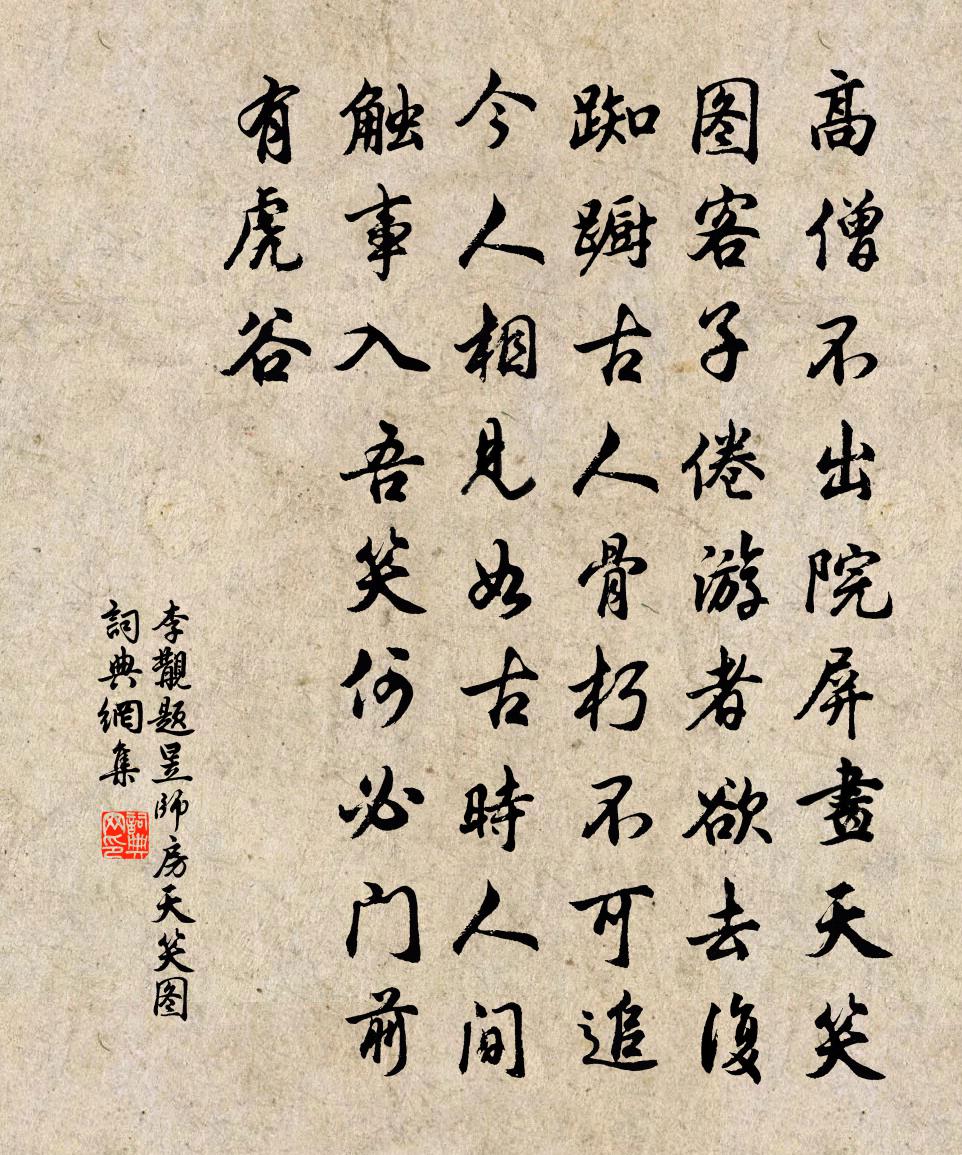 高僧不出院屏畫天笑
图客子倦游者欲去復
踟蹰古人骨朽不可追
今人相見如古時人间
触事入吾笑何必门前
有虎谷
李覯题昱師房天笑图
詞典網集
詞典网印